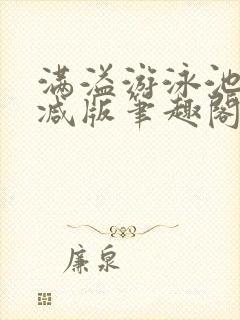 满溢游泳池
减版笔趣阁
廉泉